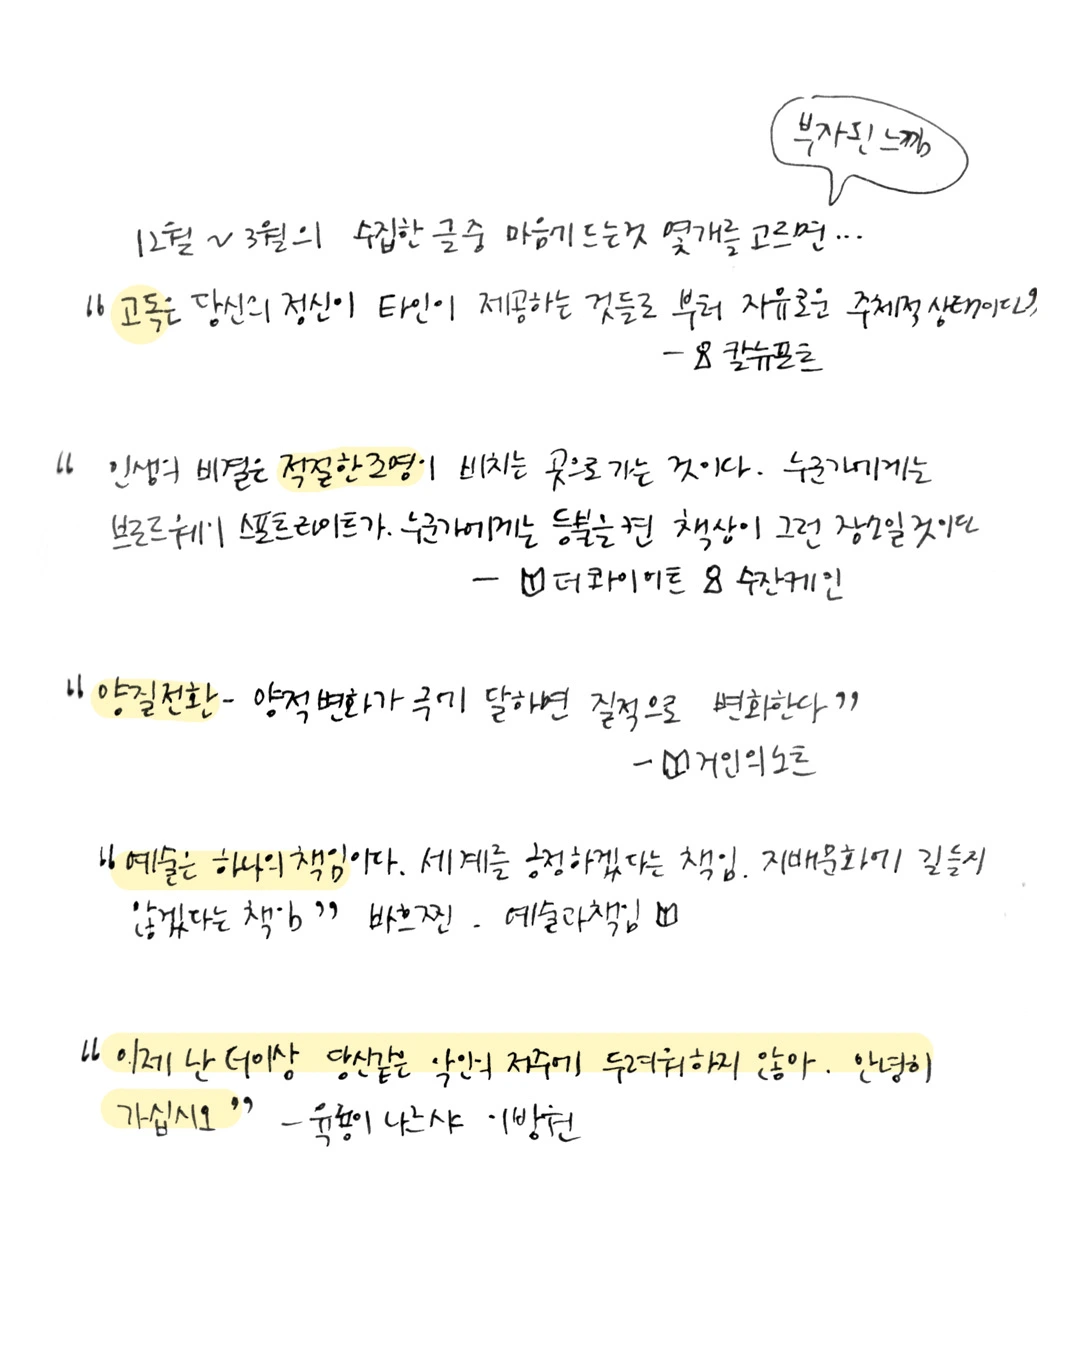 부자된 느낌
12월 ~ 3월의 수집한 글 중 마음에 드는것 몇개를 고르면...
“고독은 당신의 정신이 타인이 제공하는 것들로 부터 자유로운 주체적 상태이다”
- 칼뉴포트
“ 인생의 비결은 적절한 조명이 비치는 곳으로 가는 것이다. 누군가에게는
브로드웨이 스포트라이트가. 누군가에게는 등불을 켠 책상이 그런 장소일 것이다
- 더 콰이어트 수잔케인
“양질전환 - 양적 변화가 극에 달하면 질적으로 변화한다”
- 거인의 노트
“예술은 하나의 책임이다. 세계를 긍정하겠다는 책임. 지배문화에 길들지
않겠다는 책임” 바흐찐. 예술과 책임
“이제 난 더이상 당신같은 악인의 저주에 두려워하지 않아. 안녕히
가십시오” - 육룡이 나르샤 이방원